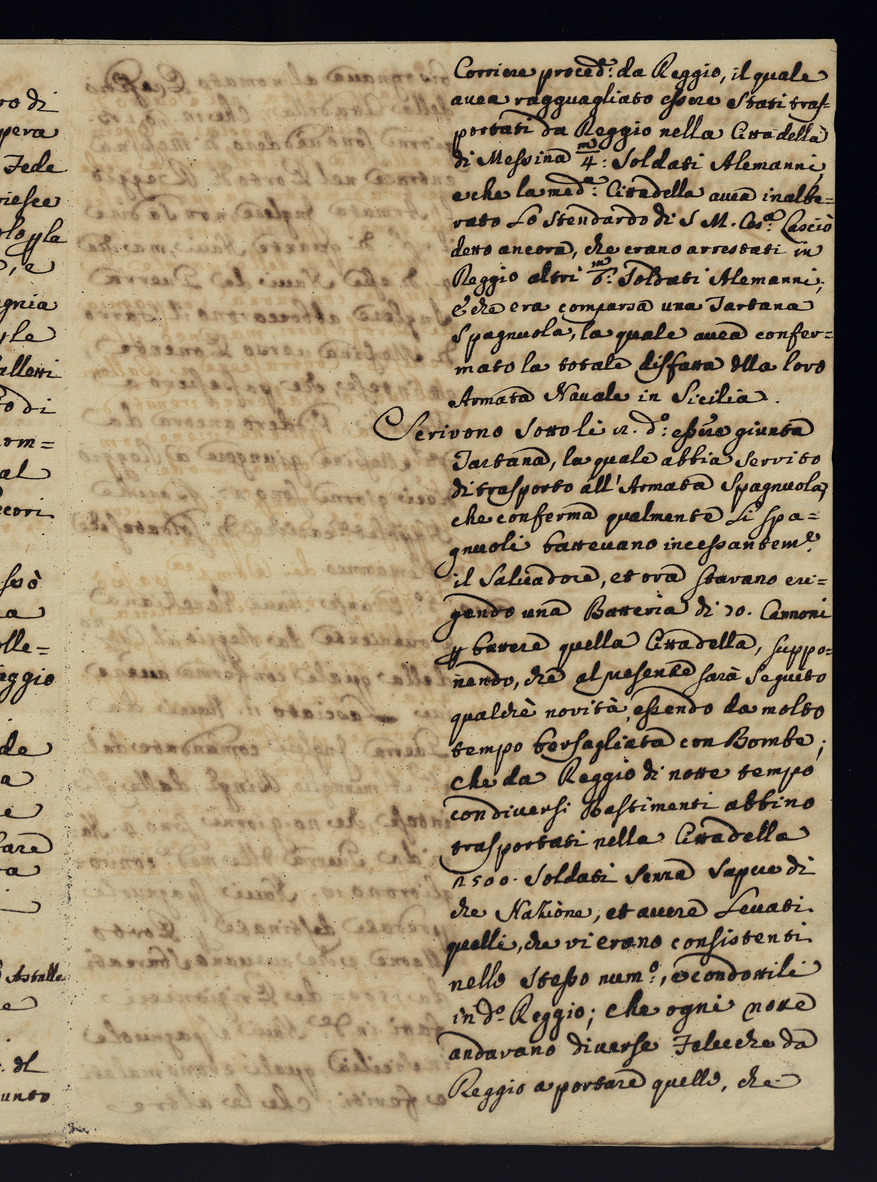 ro di
pera
Fede
riesce
, e
gnia
alletti
to di
om=
al
ssò
a
olle=
aggio
de
a
e
fare
ra
Astalle
e
unto
Corriere proced.: da Reggio, il quale
avea ragguagliato essere Stati tras-
portati da Reggio nella Cittadella
di Messina m/4: Soldati Alemanni,
e che la med.a: Cittadella avea inalbe=
rato Lo Stendardo di S. M. Ces.a: Lasciò
detto ancora, che erano arrestati in
Reggio altri m/6: Soldati Alemanni;
E che era comparsa una Tartana
Spagnuola, la quale avea confer=
mato la totale disfatta della loro
Armata Navale in Sicilia.
Scrivono Sotto li 12. d.o: essere giunta
Tartana, la quale abbia servito
di trasporto all'Armata Spagnuola,
che conferma qualmente Li Spa=
gnuoli battevano incessantem.e
il Salvadore, et ora stavano eri=
gendo una Batteria di 70. Cannoni
p battere quella Cittadella, suppo=
nendo, che al presente sarà seguito
qualche novità, essendo da molto
tempo bersagliata con Bombe;
che da Reggio di notte tempo
con diversi Bastimenti abbino
trasportati nella Cittadella
2500. Soldati senza sapere di
che Nazione, et avere Levati
quelli, che vi erano consistenti
nello Stesso num.o, e condottili
in d.o Reggio; che ogni notte
andavano diverse Feluche da
Reggio a portare quello, che